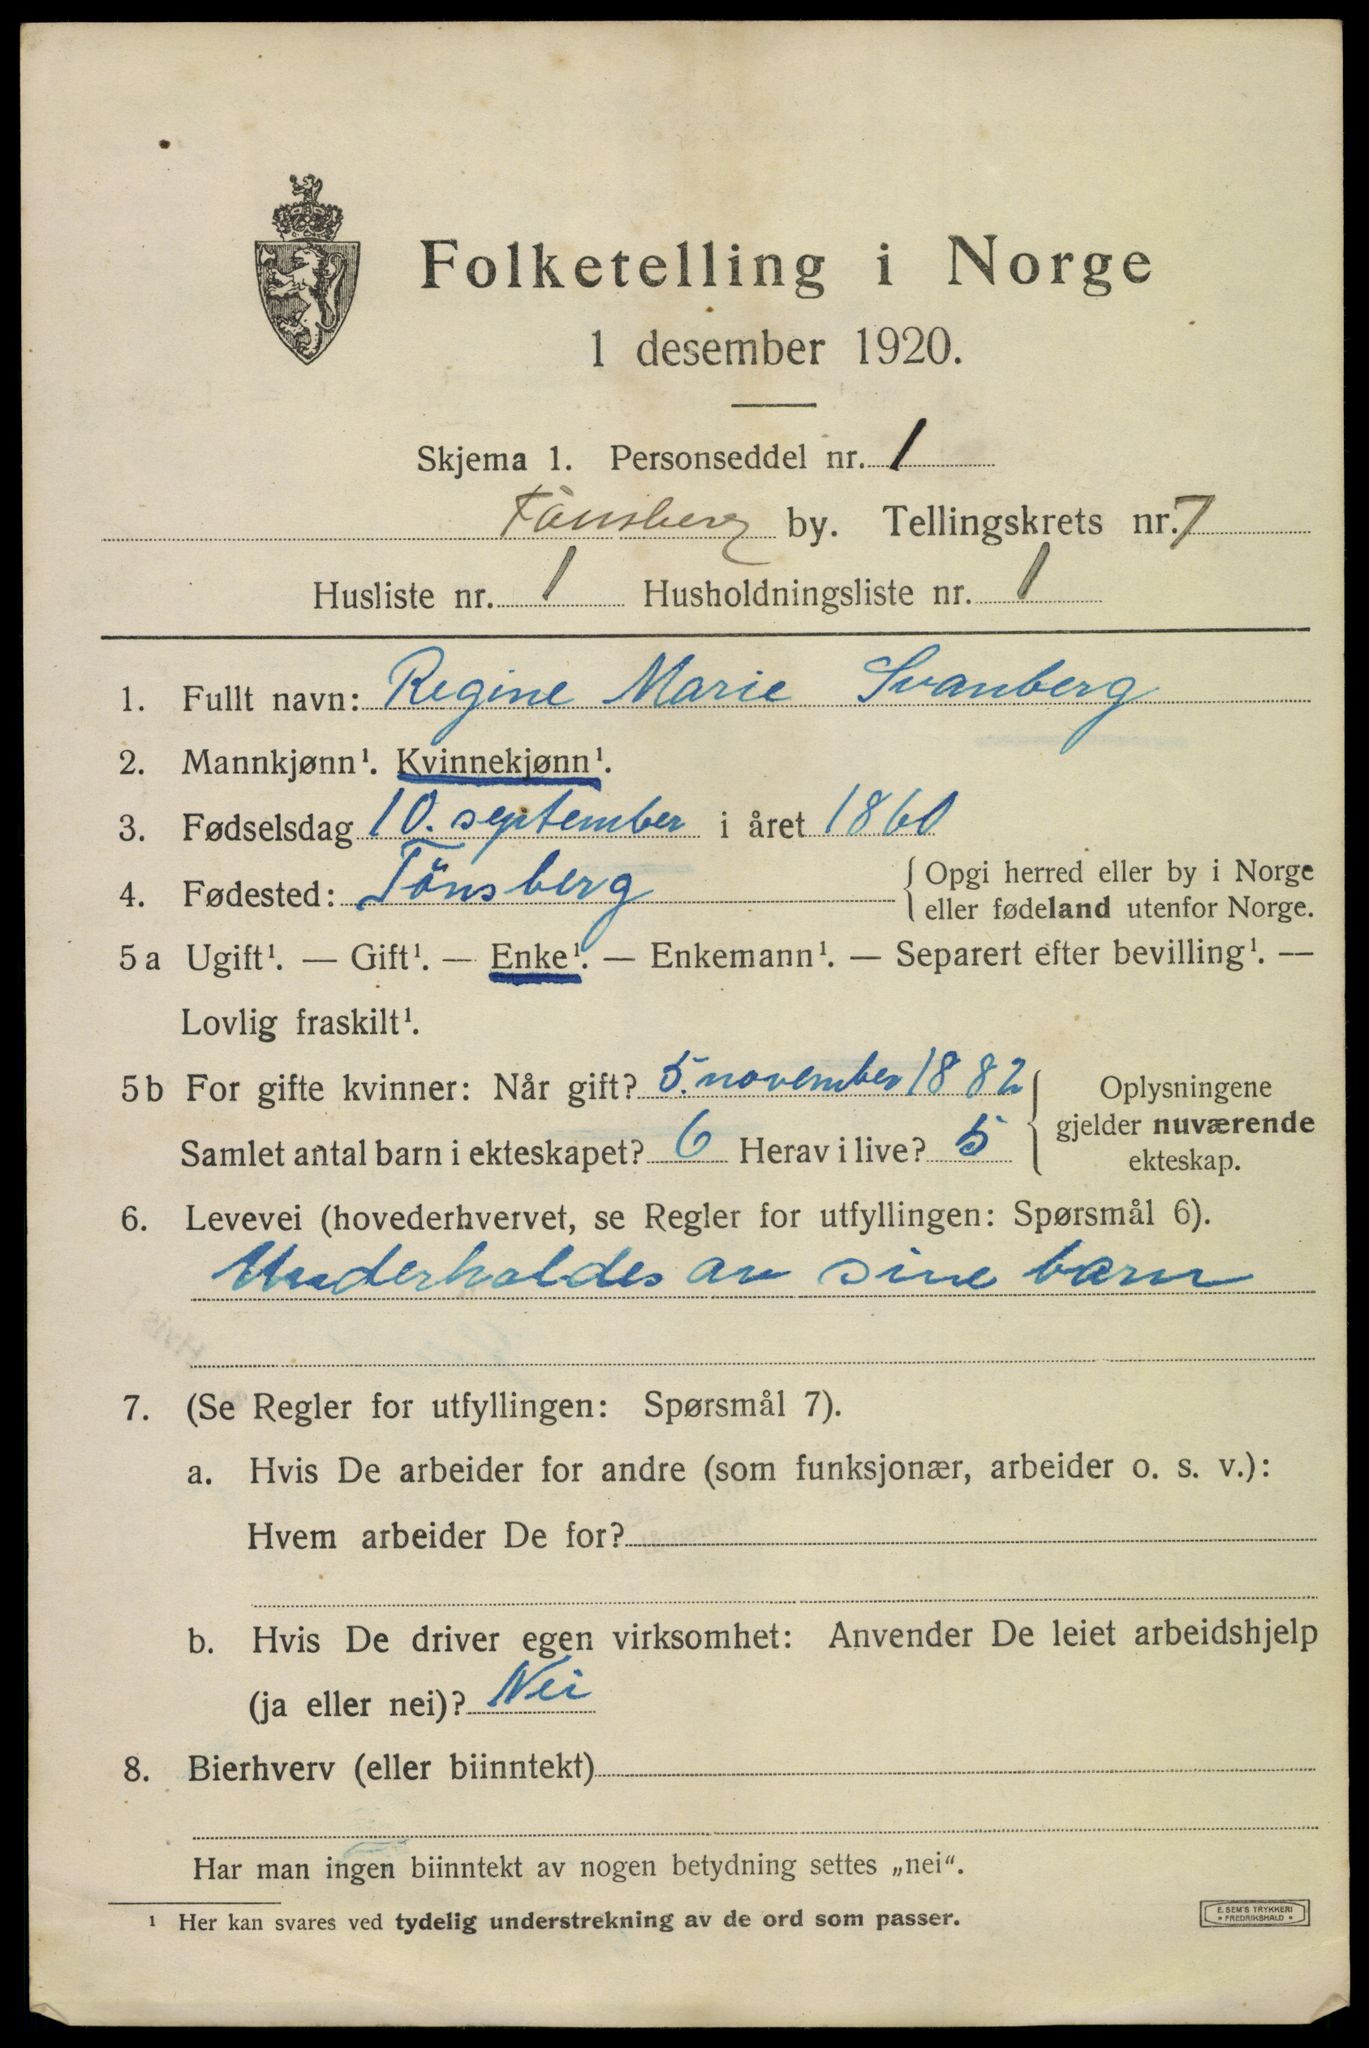 Folketelling i Norge
1 desember 1920.
Skjema 1. Personseddel nr. 1
Tönsberg by. Tellingskrets nr. 7
Husliste nr. 1 Husholdningsliste nr. 1
1. Fullt navn: Regine Marie Svanberg
2. Mannkjønn¹. Kvinnekjønn¹.
3. Fødselsdag 10. september i året 1860
4. Fødested: Tönsberg {Opgi herred eller by i Norge
eller fødeland utenfor Norge.
5 a Ugift¹. — Gift¹. — Enke¹. — Enkemann¹. — Separert efter bevilling¹. —
Lovlig fraskilt¹.
5 b For gifte kvinner: Når gift? 5. november 1882
Samlet antal barn i ekteskapet? 6 Herav i live? 5
} Oplysningene
gjelder nuværende
ekteskap.
6. Levevei (hovederhvervet, se Regler for utfyllingen: Spørsmål 6).
Underholdes av sine barn
7. (Se Regler for utfyllingen: Spørsmål 7).
a. Hvis De arbeider for andre (som funksjonær, arbeider o. s. v.):
Hvem arbeider De for?
b. Hvis De driver egen virksomhet: Anvender De leiet arbeidshjelp
(ja eller nei)? Nei
8. Bierhverv (eller biinntekt)
Har man ingen biinntekt av nogen betydning settes „nei“.
¹ Her kan svares ved tydelig understrekning av de ord som passer.
E. SEM'S TRYKKERI
• FREDRIKSHALD •